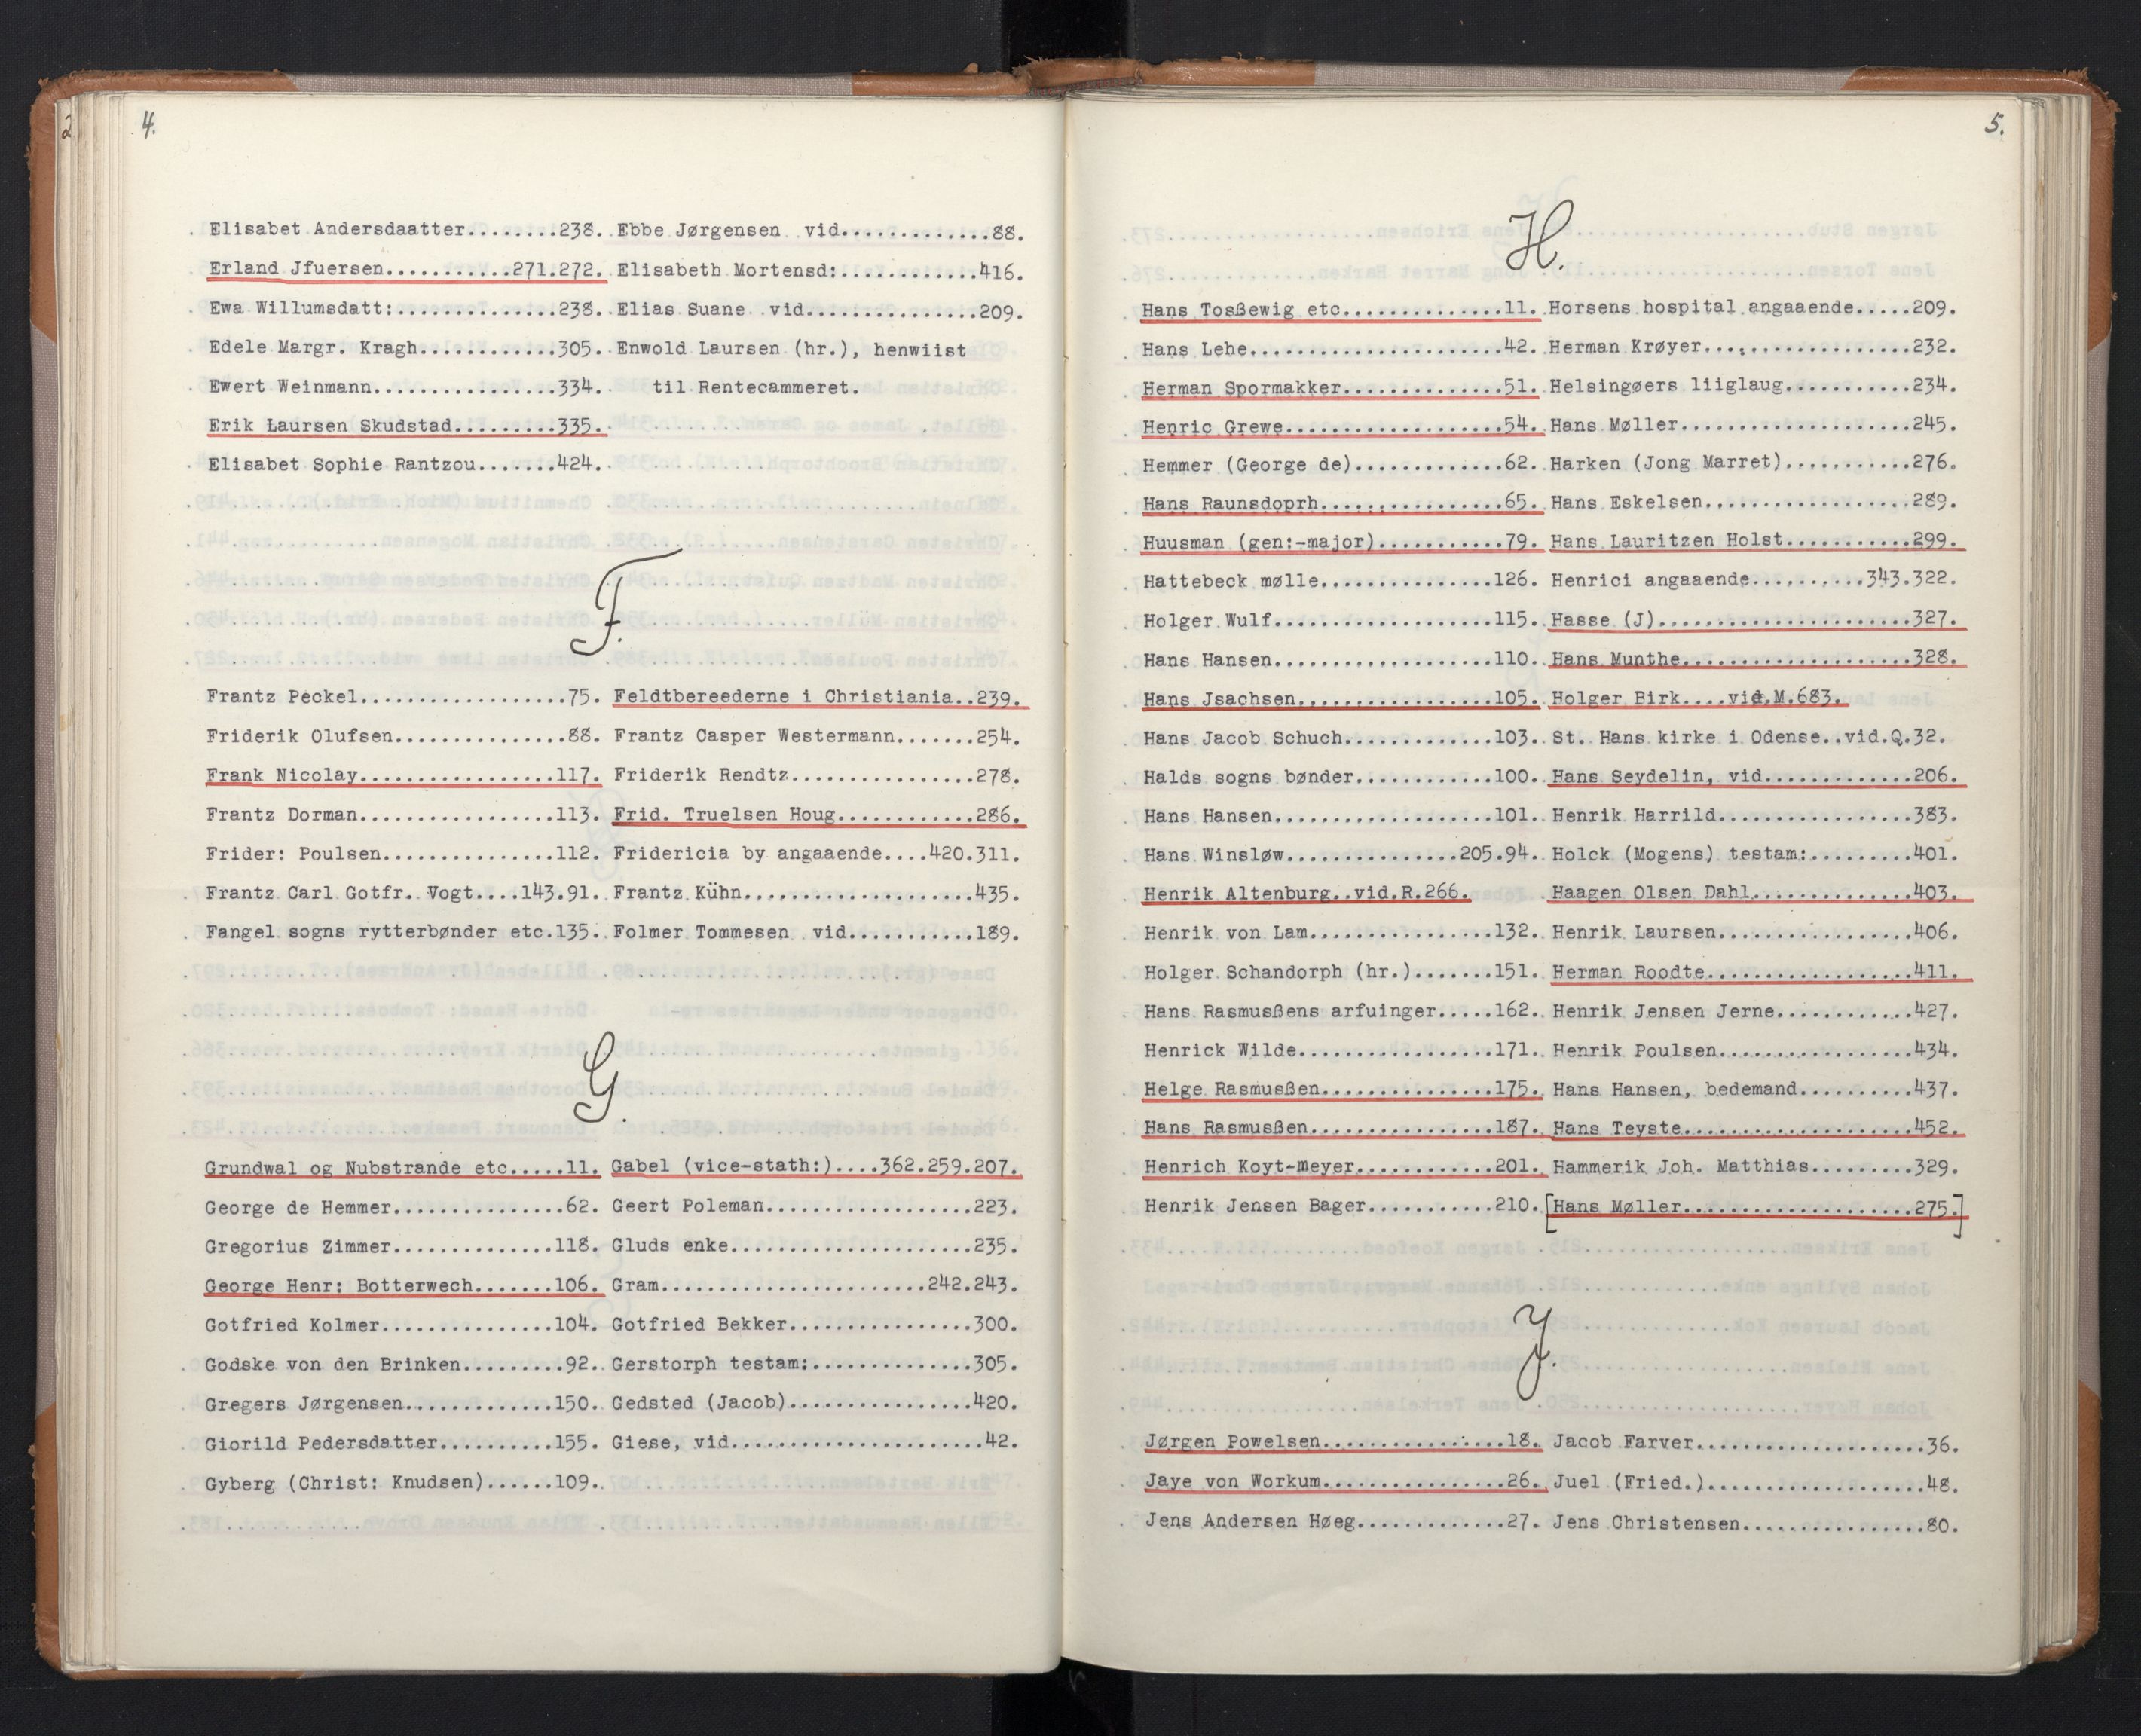 2
4.
Elisabet Andersdaatter........238.
Erland Jfuersen...........271.272.
Ewa Willumsdatt:..............238.
Edele Margr. Kragh............305.
Ewert Weinmann................334.
Erik Laursen Skudstad.........335.
Elisabet Sophie Rantzou.......424.
Ebbe Jørgensen vid.............88.
Elisabeth Mortensd:............416.
Elias Suane vid...............209.
Enwold Laursen (hr.), henwiist
til Rentecammeret.
F.
Frantz Peckel..................75.
Friderik Olufsen...............88.
Frank Nicolay.................117.
Frantz Dorman.................113.
Frider: Poulsen...............112.
Frantz Carl Gotfr. Vogt....143.91.
Fangel sogns rytterbønder etc.135.
Feldtbereederne i Christiania..239.
Frantz Casper Westermann.......254.
Friderik Rendtz................278.
Frid. Truelsen Houg............286.
Fridericia by angaaende....420.311.
Frantz Kühn....................435.
Folmer Tommesen vid...........189.
G.
Grundwal og Nubstrande etc.....11.
George de Hemmer...............62.
Gregorius Zimmer..............118.
George Henr: Botterwech.......106.
Gotfried Kolmer...............104.
Godske von den Brinken.........92.
Gregers Jørgensen.............150.
Giorild Pedersdatter..........155.
Gyberg (Christ: Knudsen)......109.
Gabel (vice-stath:)....362.259.207.
Geert Poleman..................223.
Gluds enke.....................235.
Gram.......................242.243.
Gotfried Bekker................300.
Gerstorph testam:..............305.
Gedsted (Jacob)................420.
Giese, vid......................42.
5.
H.
Hans Tosßewig etc..............11.
Hans Lehe......................42.
Herman Spormakker..............51.
Henric Grewe...................54.
Hemmer (George de).............62.
Hans Raunsdoprh................65.
Huusman (gen:-major)...........79.
Hattebeck mølle...............126.
Holger Wulf...................115.
Hans Hansen...................110.
Hans Jsachsen.................105.
Hans Jacob Schuch.............103.
Halds sogns bønder............100.
Hans Hansen...................101.
Hans Winsløw...............205.94.
Henrik Altenburg..vid.R.266.
Henrik von Lam................132.
Holger Schandorph (hr.).......151.
Hans Rasmusßens arfuinger.....162.
Henrick Wilde.................171.
Helge Rasmusßen...............175.
Hans Rasmusßen................187.
Henrich Koyt-meyer............201.
Henrik Jensen Bager...........210.
Horsens hospital angaaende.....209.
Herman Krøyer..................232.
Helsingøers liiglaug...........234.
Hans Møller....................245.
Harken (Jong Marret)...........276.
Hans Eskelsen..................289.
Hans Lauritzen Holst...........299.
Henrici angaaende..........343.322.
Hasse (J)......................327.
Hans Munthe....................328.
Holger Birk....vid.M.683.
St. Hans kirke i Odense..vid.Q.32.
Hans Seydelin, vid.............206.
Henrik Harrild.................383.
Holck (Mogens) testam:.........401.
Haagen Olsen Dahl..............403.
Henrik Laursen.................406.
Herman Roodte..................411.
Henrik Jensen Jerne............427.
Henrik Poulsen.................434.
Hans Hansen, bedemand..........437.
Hans Teyste....................452.
Hammerik Joh. Matthias.........329.
[Hans Møller....................275.]
J.
Jørgen Powelsen................18.
Jaye von Workum................26.
Jens Andersen Høeg.............27.
Jacob Farver....................36.
Juel (Fried.)...................48.
Jens Christensen................80.